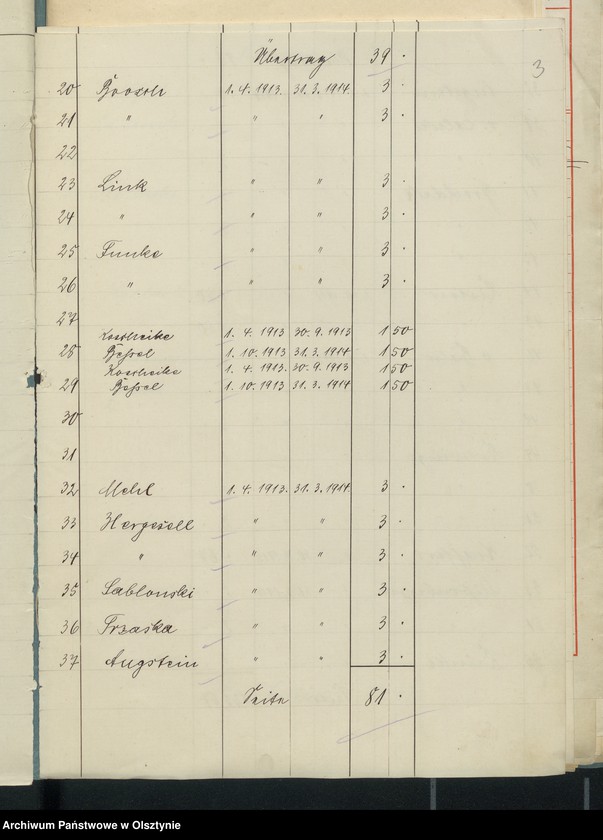 Übertrag 39 .
3
20 Boosch 1. 4. 1913. 31. 3. 1914. 3 .
21 " " " 3 .
22
23 Link " " 3 .
24 " " " 3 .
25 Funke " " 3 .
26 " " " 3 .
27
Koscheike 1. 4. 1913 30. 9. 1913 1 50
28 Bessel 1. 10. 1913 31. 3. 1914 1 50
Koscheike 1. 4. 1913. 30. 9. 1913 1 50
29 Bessel 1. 10. 1913 31. 3. 1914 1 50
30
31
32 Mehl 1. 4. 1913. 31. 3. 1914. 3 .
33 Hergesell " " 3 .
34 " " " 3 .
35 Sablonski " " 3 .
36 Trzaska " " 3 .
37 Augstein " " 3 .
Seite 81 .
Archiwum Państwowe w Olsztynie